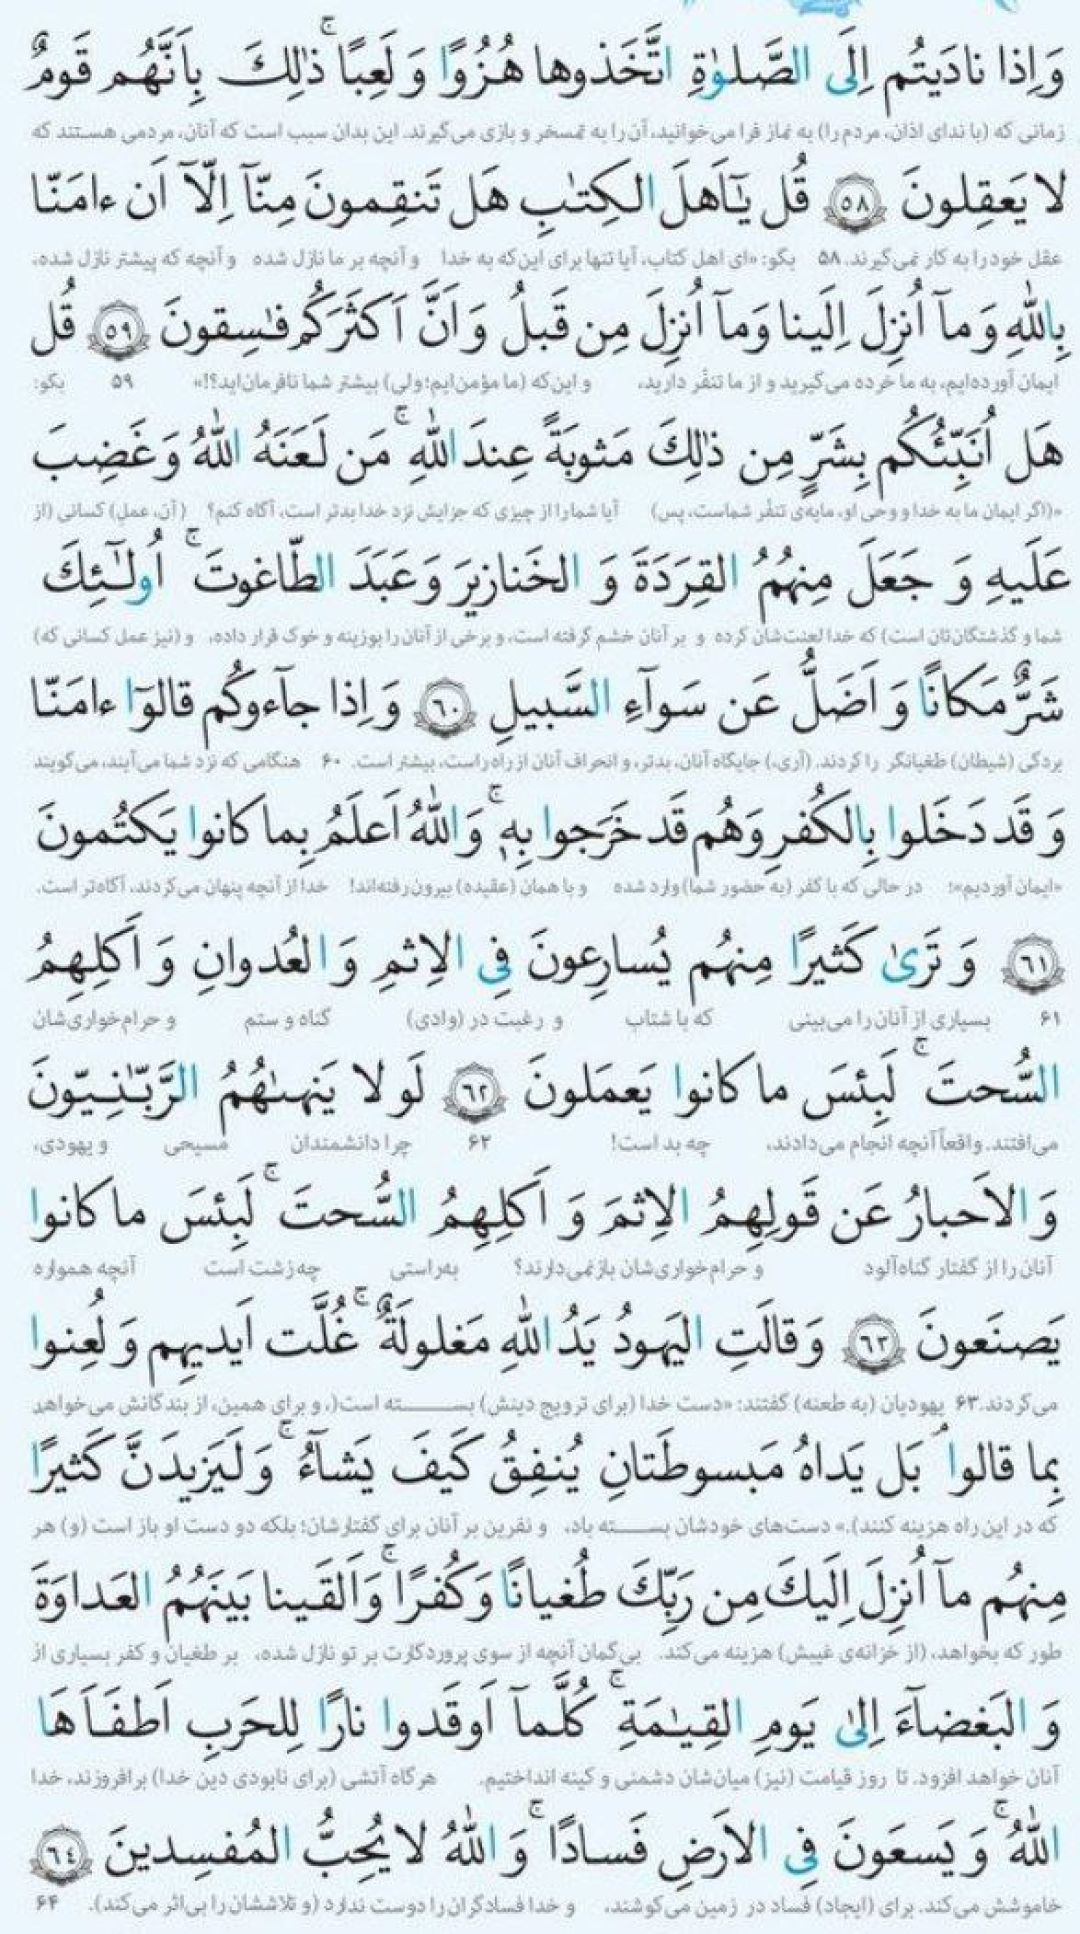 وَ اِذا نادَيتُم اِلَى الصَّلوٰةِ اتَّخَذوها هُزُوًا وَ لَعِبًا ۚ ذٰلِكَ بِاَنَّهُم قَومٌ
زمانی که (با ندای اذان، مردم را) به نماز فرا می‌خوانید، آن را به تمسخر و بازی می‌گیرند. این بدان سبب است که آنان، مردمی هستند که
لا يَعقِلونَ ﴿٥٨﴾ قُل يٰٓاَهلَ الكِتٰبِ هَل تَنقِمونَ مِنّآ اِلّآ اَن ءامَنّا
عقل خود را به کار نمی‌گیرند. ۵۸ بگو: «ای اهل کتاب، آیا تنها برای این‌که به خدا و آنچه بر ما نازل شده و آنچه که پیشتر نازل شده،
بِاللّٰهِ وَ مآ اُنزِلَ اِلَينا وَ مآ اُنزِلَ مِن قَبلُ وَ اَنَّ اَكثَرَكُم فٰسِقونَ ﴿٥٩﴾ قُل
ایمان آورده‌ایم، به ما خرده می‌گیرید و از ما تنفّر دارید، و این‌که (ما مؤمن‌ایم؛ ولی) بیشتر شما نافرمان‌اید؟!» ۵۹ بگو:
هَل اُنَبِّئُكُم بِشَرٍّ مِن ذٰلِكَ مَثوبَةً عِندَ اللّٰهِ ۚ مَن لَعَنَهُ اللّٰهُ وَ غَضِبَ
«(اگر ایمان ما به خدا و وحی او، مایه‌ی تنفّر شماست، پس) آیا شما را از چیزی که جزایش نزد خدا بدتر است، آگاه کنم؟ (آن، عمل) کسانی (از
عَلَيهِ وَ جَعَلَ مِنهُمُ القِرَدَةَ وَ الخَنازيرَ وَ عَبَدَ الطّاغوتَ ۚ اُولٰٓئِكَ
شما و گذشتگان‌تان است) که خدا لعنت‌شان کرده و بر آنان خشم گرفته است، و برخی از آنان را بوزینه و خوک قرار داده، و (نیز عمل کسانی که)
شَرٌّ مَكانًا وَ اَضَلُّ عَن سَوآءِ السَّبيلِ ﴿٦٠﴾ وَ اِذا جآءوكُم قالوٓا ءامَنّا
بردگی (شیطان) طغیانگر را کردند. (آری،) جایگاه آنان، بدتر، و انحراف آنان از راه راست، بیشتر است. ۶۰ هنگامی که نزد شما می‌آیند، می‌گویند
وَ قَد دَخَلوا بِالكُفرِ وَ هُم قَد خَرَجوا بِهٖ ۚ وَ اللّٰهُ اَعلَمُ بِما كانوا يَكتُمونَ
«ایمان آوردیم»؛ در حالی که با کفر (به حضور شما) وارد شده و با همان (عقیده) بیرون رفته‌اند! خدا از آنچه پنهان می‌کردند، آگاه‌تر است.
﴿٦١﴾ وَ تَرىٰ كَثيرًا مِنهُم يُسارِعونَ فِى الاِثمِ وَ العُدوانِ وَ اَكلِهِمُ
۶۱ بسیاری از آنان را می‌بینی که با شتاب و رغبت در (وادی) گناه و ستم و حرام‌خواری‌شان
السُّحتَ ۚ لَبِئسَ ما كانوا يَعمَلونَ ﴿٦٢﴾ لَو لا يَنهىٰهُمُ الرَّبّٰنِيّونَ
می‌افتند. واقعاً آنچه انجام می‌دادند، چه بد است! ۶۲ چرا دانشمندان مسیحی و یهودی،
وَ الاَحبارُ عَن قَولِهِمُ الاِثمَ وَ اَكلِهِمُ السُّحتَ ۚ لَبِئسَ ما كانوا
آنان را از گفتار گناه‌آلود و حرام‌خواری‌شان باز نمی‌دارند؟ به‌راستی چه زشت است آنچه همواره
يَصنَعونَ ﴿٦٣﴾ وَ قالَتِ اليَهودُ يَدُ اللّٰهِ مَغلولَةٌ ۚ غُلَّت اَيديهِم وَ لُعِنوا
می‌کردند. ۶۳ یهودیان (به طعنه) گفتند: «دست خدا (برای ترویج دینش) بســـته است(، و برای همین، از بندگانش می‌خواهد
بِما قالوا ۘ بَل يَداهُ مَبسوطَتانِ يُنفِقُ كَيفَ يَشآءُ ۚ وَ لَيَزيدَنَّ كَثيرًا
که در این راه هزینه کنند).» دست‌های خودشان بســـته باد، و نفرین بر آنان برای گفتارشان؛ بلکه دو دست او باز است (و) هر
مِنهُم مآ اُنزِلَ اِلَيكَ مِن رَبِّكَ طُغيانًا وَ كُفرًا ۚ وَ اَلقَينا بَينَهُمُ العَداوَةَ
طور که بخواهد، (از خزانه‌ی غیبش) هزینه می‌کند. بی‌گمان آنچه از سوی پروردگارت بر تو نازل شده، بر طغیان و کفر بسیاری از
وَ البَغضآءَ اِلىٰ يَومِ القِيٰمَةِ ۚ كُلَّمآ اَوقَدوا نارًا لِلحَربِ اَطفَاَهَا
آنان خواهد افزود. تا روز قیامت (نیز) میان‌شان دشمنی و کینه انداختیم. هر گاه آتشی (برای نابودی دین خدا) برافروزند، خدا
اللّٰهُ ۚ وَ يَسعَونَ فِى الاَرضِ فَسادًا ۚ وَ اللّٰهُ لا يُحِبُّ المُفسِدينَ ﴿٦٤﴾
خاموشش می‌کند. برای (ایجاد) فساد در زمین می‌کوشند، و خدا فسادگران را دوست ندارد (و تلاششان را بی‌اثر می‌کند). ۶۴